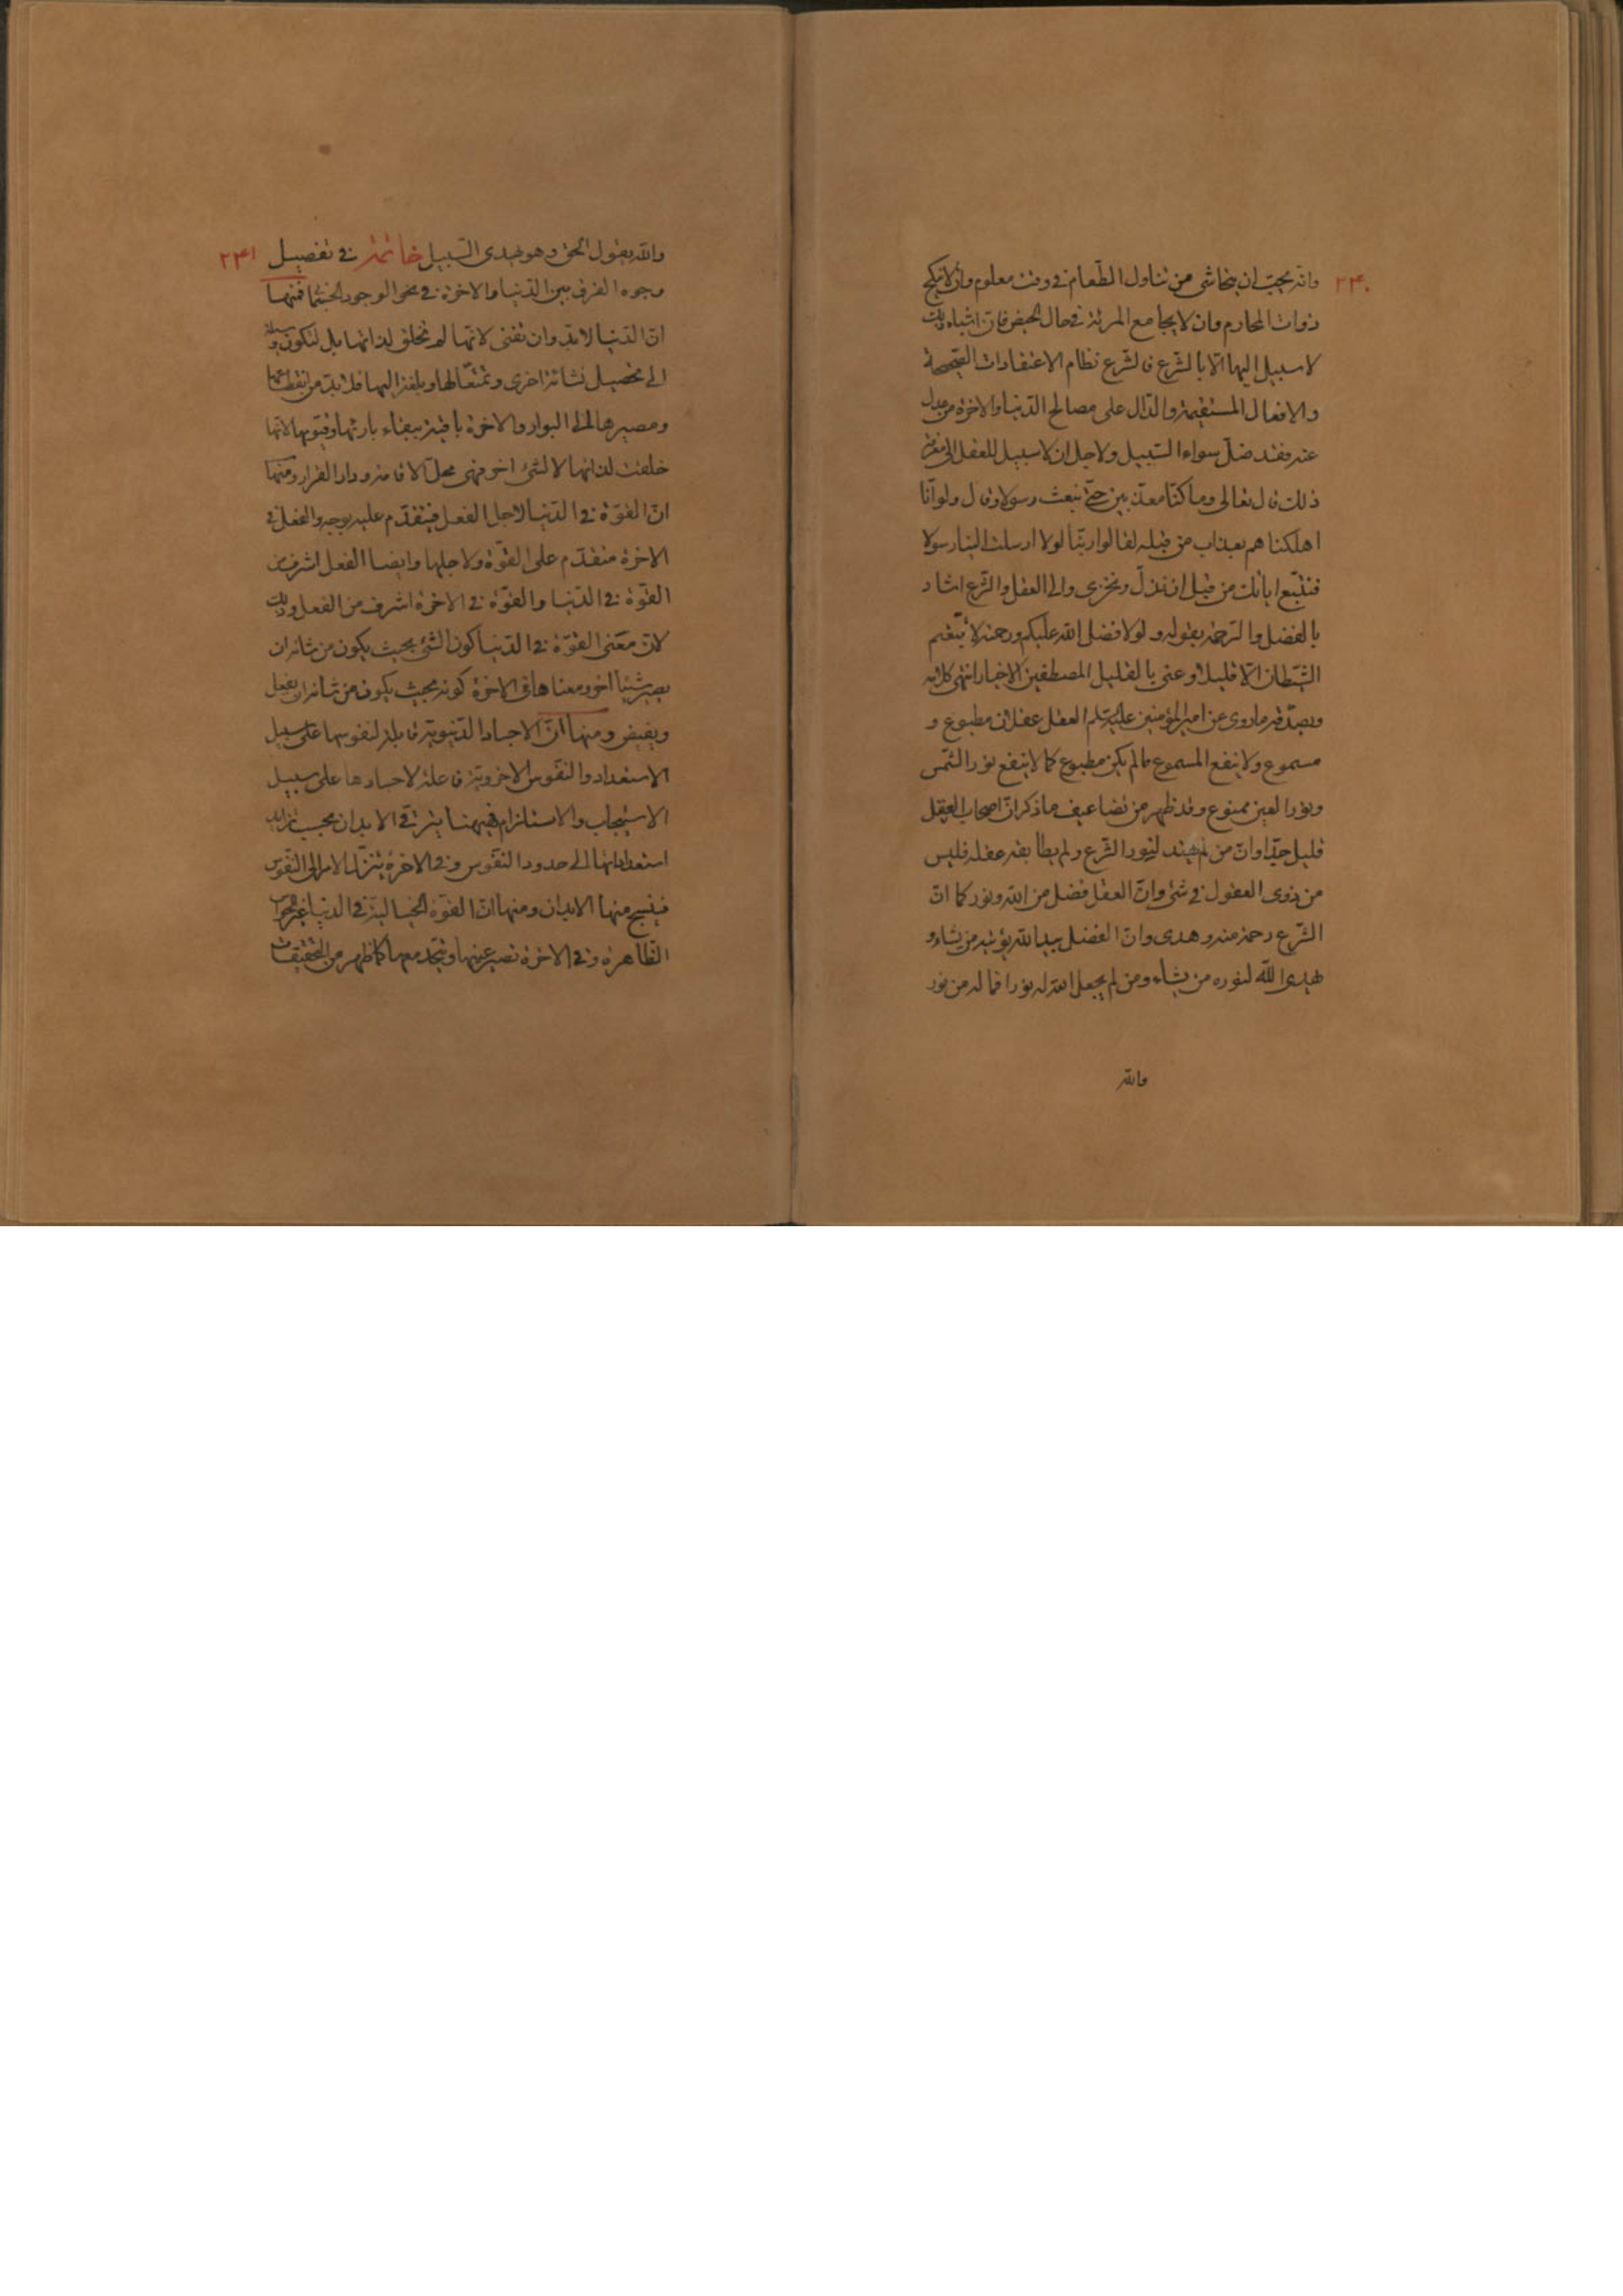 ٢٤٠
وانه يجب ان يتحاشى من تناول الطعام فى وقت معلوم وان لا ينكح
ذوات المحارم وان لا يجامع المرئة فى حال الحيض فان اشباه ذلك
لا سبيل اليها الّا بالشرع فالشرع نظام الاعتقادات الصحيحة
والافعال المستقيمة والدّال على مصالح الدنيا والاخرة من عدل
عنه فقد ضلّ سواء السّبيل ولاجل ان لا سبيل للعقل الى معرفة
ذلك قال تعالى وما كنّا معذّبين حتّى نبعث رسولا وقال ولو انّا
اهلكناهم بعذاب من قبله لقالوا ربّنا لولا ارسلت الينا رسولا
فنتّبع اياتك من قبل ان نذلّ ونخزى والى العقل والشّرع اشار
بالفضل والرّحمة بقوله ولولا فضل الله عليكم ورحمته لاتّبعتم
الشّيطان الّا قليلا وعنى بالقليل المصطفين الاخيار انتهى كلامه
ويصدّقه ما روى عن امير المؤمنين عليه السّلم العقل عقلان مطبوع و
مسموع ولا ينفع المسموع ما لم يكن مطبوع كما لا ينفع نور الشّمس
ونور العين ممنوع وقد ظهر من تضاعيف ما ذكر انّ اصحاب العقل
قليل جدّا وانّ من لم يهتد لنور الشّرع ولم يطابقه عقله فليس
من ذوى العقول فى شئ وانّ العقل فضل من الله ونور كما انّ
الشّرع رحمة منه وهدى وانّ الفضل بيد الله يؤتيه من يشاء و
يهدى الله لنوره من يشاء ومن لم يجعل الله له نورا فما له من نور
والله
٢٤١
والله يقول الحق وهو يهدى السّبيل خاتمة فى تفصيل
وجوه الفرق بين الدّنيا والاخرة فى نحو الوجود الجسمانى فمنها
انّ الدّنيا لا بدّ وان تفنى لانّها لم تخلق لذاتها بل لتكون وسيلة
الى تحصيل نشائة اخرى وتمتّعا لها وبلغة اليها فلا بدّ من انقطاعها
ومصيرها الى البوار والاخرة باقية ببقاء بارئها وقيّومها لانّها
خلقت لذاتها لا لشئ اخر فهى محلّ الاقامة ودار القرار ومنها
انّ القوّة فى الدّنيا لاجل الفعل فيتقدّم عليه بوجه والفعل فى
الاخرة متقدّم على القوّة ولاجلها وايضا الفعل اشرف من
القوّة فى الدّنيا والقوّة فى الاخرة اشرف من الفعل وذلك
لانّ معنى القوّة فى الدّنيا كون الشّئ بحيث يكون من شانه ان
يصير شيئا اخر ومعناها فى الاخرة كونه بحيث يكون من شانه ان يفعل
ويفيض ومنها انّ الاجساد الدّنيويّة قابلة لنفوسها على سبيل
الاستعداد والنّفوس الاخرويّة فاعلة لاجسادها على سبيل
الاستيجاب والاستلزام فيهنا يترقّى الابدان بحسب تزايد
استعداداتها الى حدود النّفوس وفى الاخرة يتنزّل الامر الى النّفوس
فينسج منها الابدان ومنها انّ القوّة الخياليّة فى الدنيا غير الحواس
الظّاهرة وفى الاخرة تصير عينها ويتّحد معها كما ظهر من التحقيقات